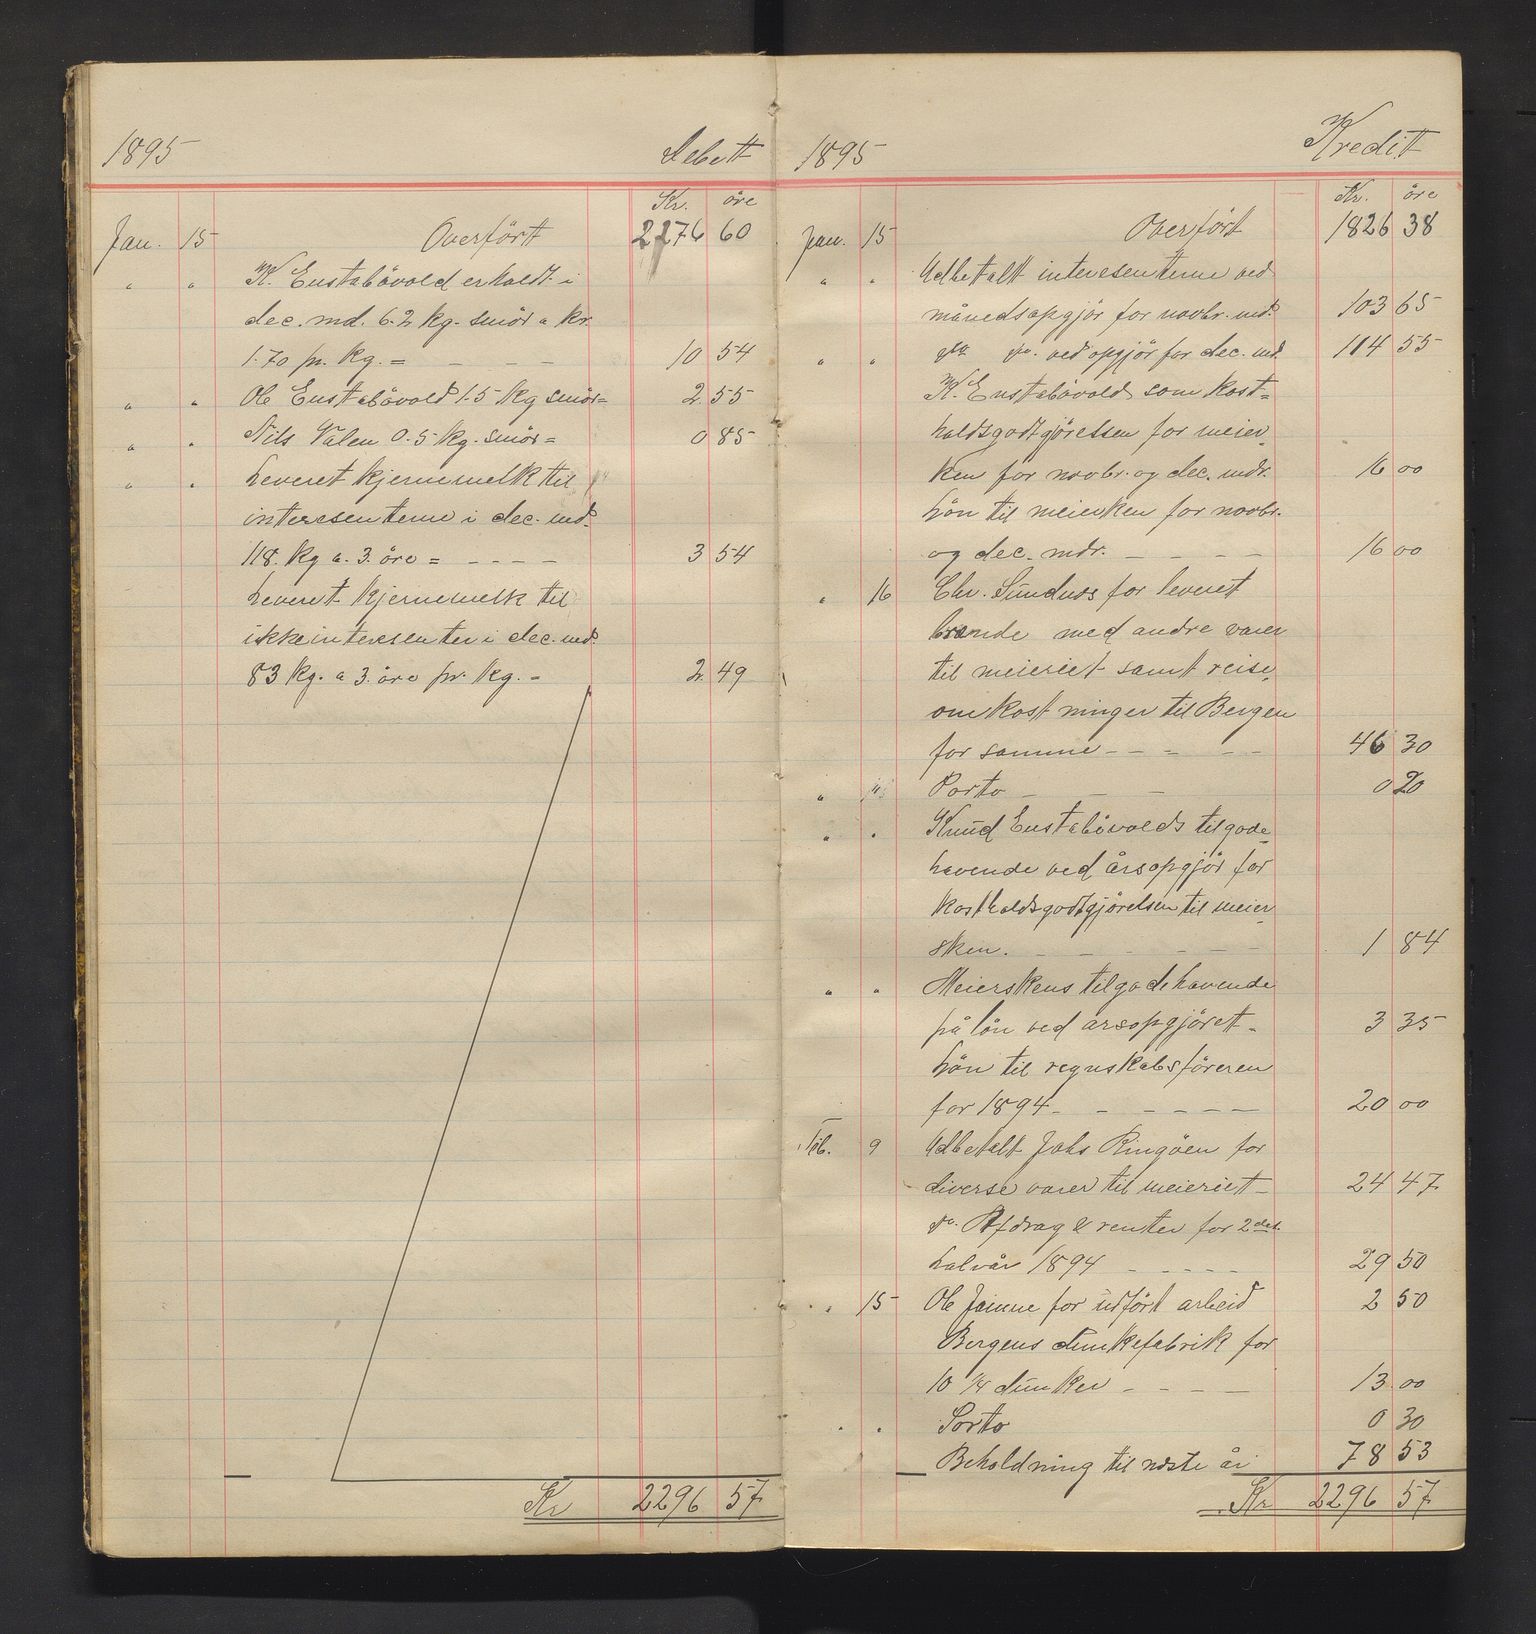 1895 Debett
Kr. öre
Jan. 15 Overfört 2276 60
" " K. Eustabövold erholdt i
dec. md. 6.2 kg. smör a kr.
1.70 pr. kg. = - - - 10 54
" " Ole Eustabövold 1.5 kg smör= 2 55
" " Nils Valen 0.5 kg. smör= 0 85
" " Leveret kjernemelk til
interesenterne i dec. md.
118. kg a. 3. öre = - - - - 3 54
Leveret kjernemelk til
ikkeinteresenter i dec. md.
83 kg. a 3. öre pr. kg. - 2 49
Kr 2296 57
1895 Kredit
Kr. öre
Jan. 15 Overfört 1826 38
" " Udbetalt interesenterne ved
månedsopgjör for novbr. md. 103 65
" " do do. ved opgjör for dec. md. 114 55
K. Eustabövold som kost=
holdsgodtgjörelsen for meier-
ken for novbr. og dec. mdr. 16 00
Lön til meierken for novbr.
og dec. mdr. - - - - 16 00
" 16 Chr. Sundnes for leveret
brænde med andre varer
til meieriet samt reise-
omkostninger til Bergen
for samme - - - - - 46 30
" " Porto - - - 0 20
" " Knud Eustabövolds tilgode=
havende ved årsopgjör for
kostholdsgodtgjörelsen til meier-
sken. - - - - - - 1 84
" " Meierskens tilgodehavende
på lön ved årsopgjöret - 3 35
Lön til regnskabsföreren
for 1894 - - - - - - 20 00
Feb. 9 Udbetalt Johs Ringöen for
diverse varer til meieriet - 24 47
do. Afdrag & renter for 2det
halvår 1894 - - - - - 29 50
" 15 Ole Jamne for udfört arbeid 2 50
Bergens dunkefabrik for
10 1/4 dunker - - - - 13 00
" " Porto 0 30
Beholdning til næste år 78 53
Kr 2296 57